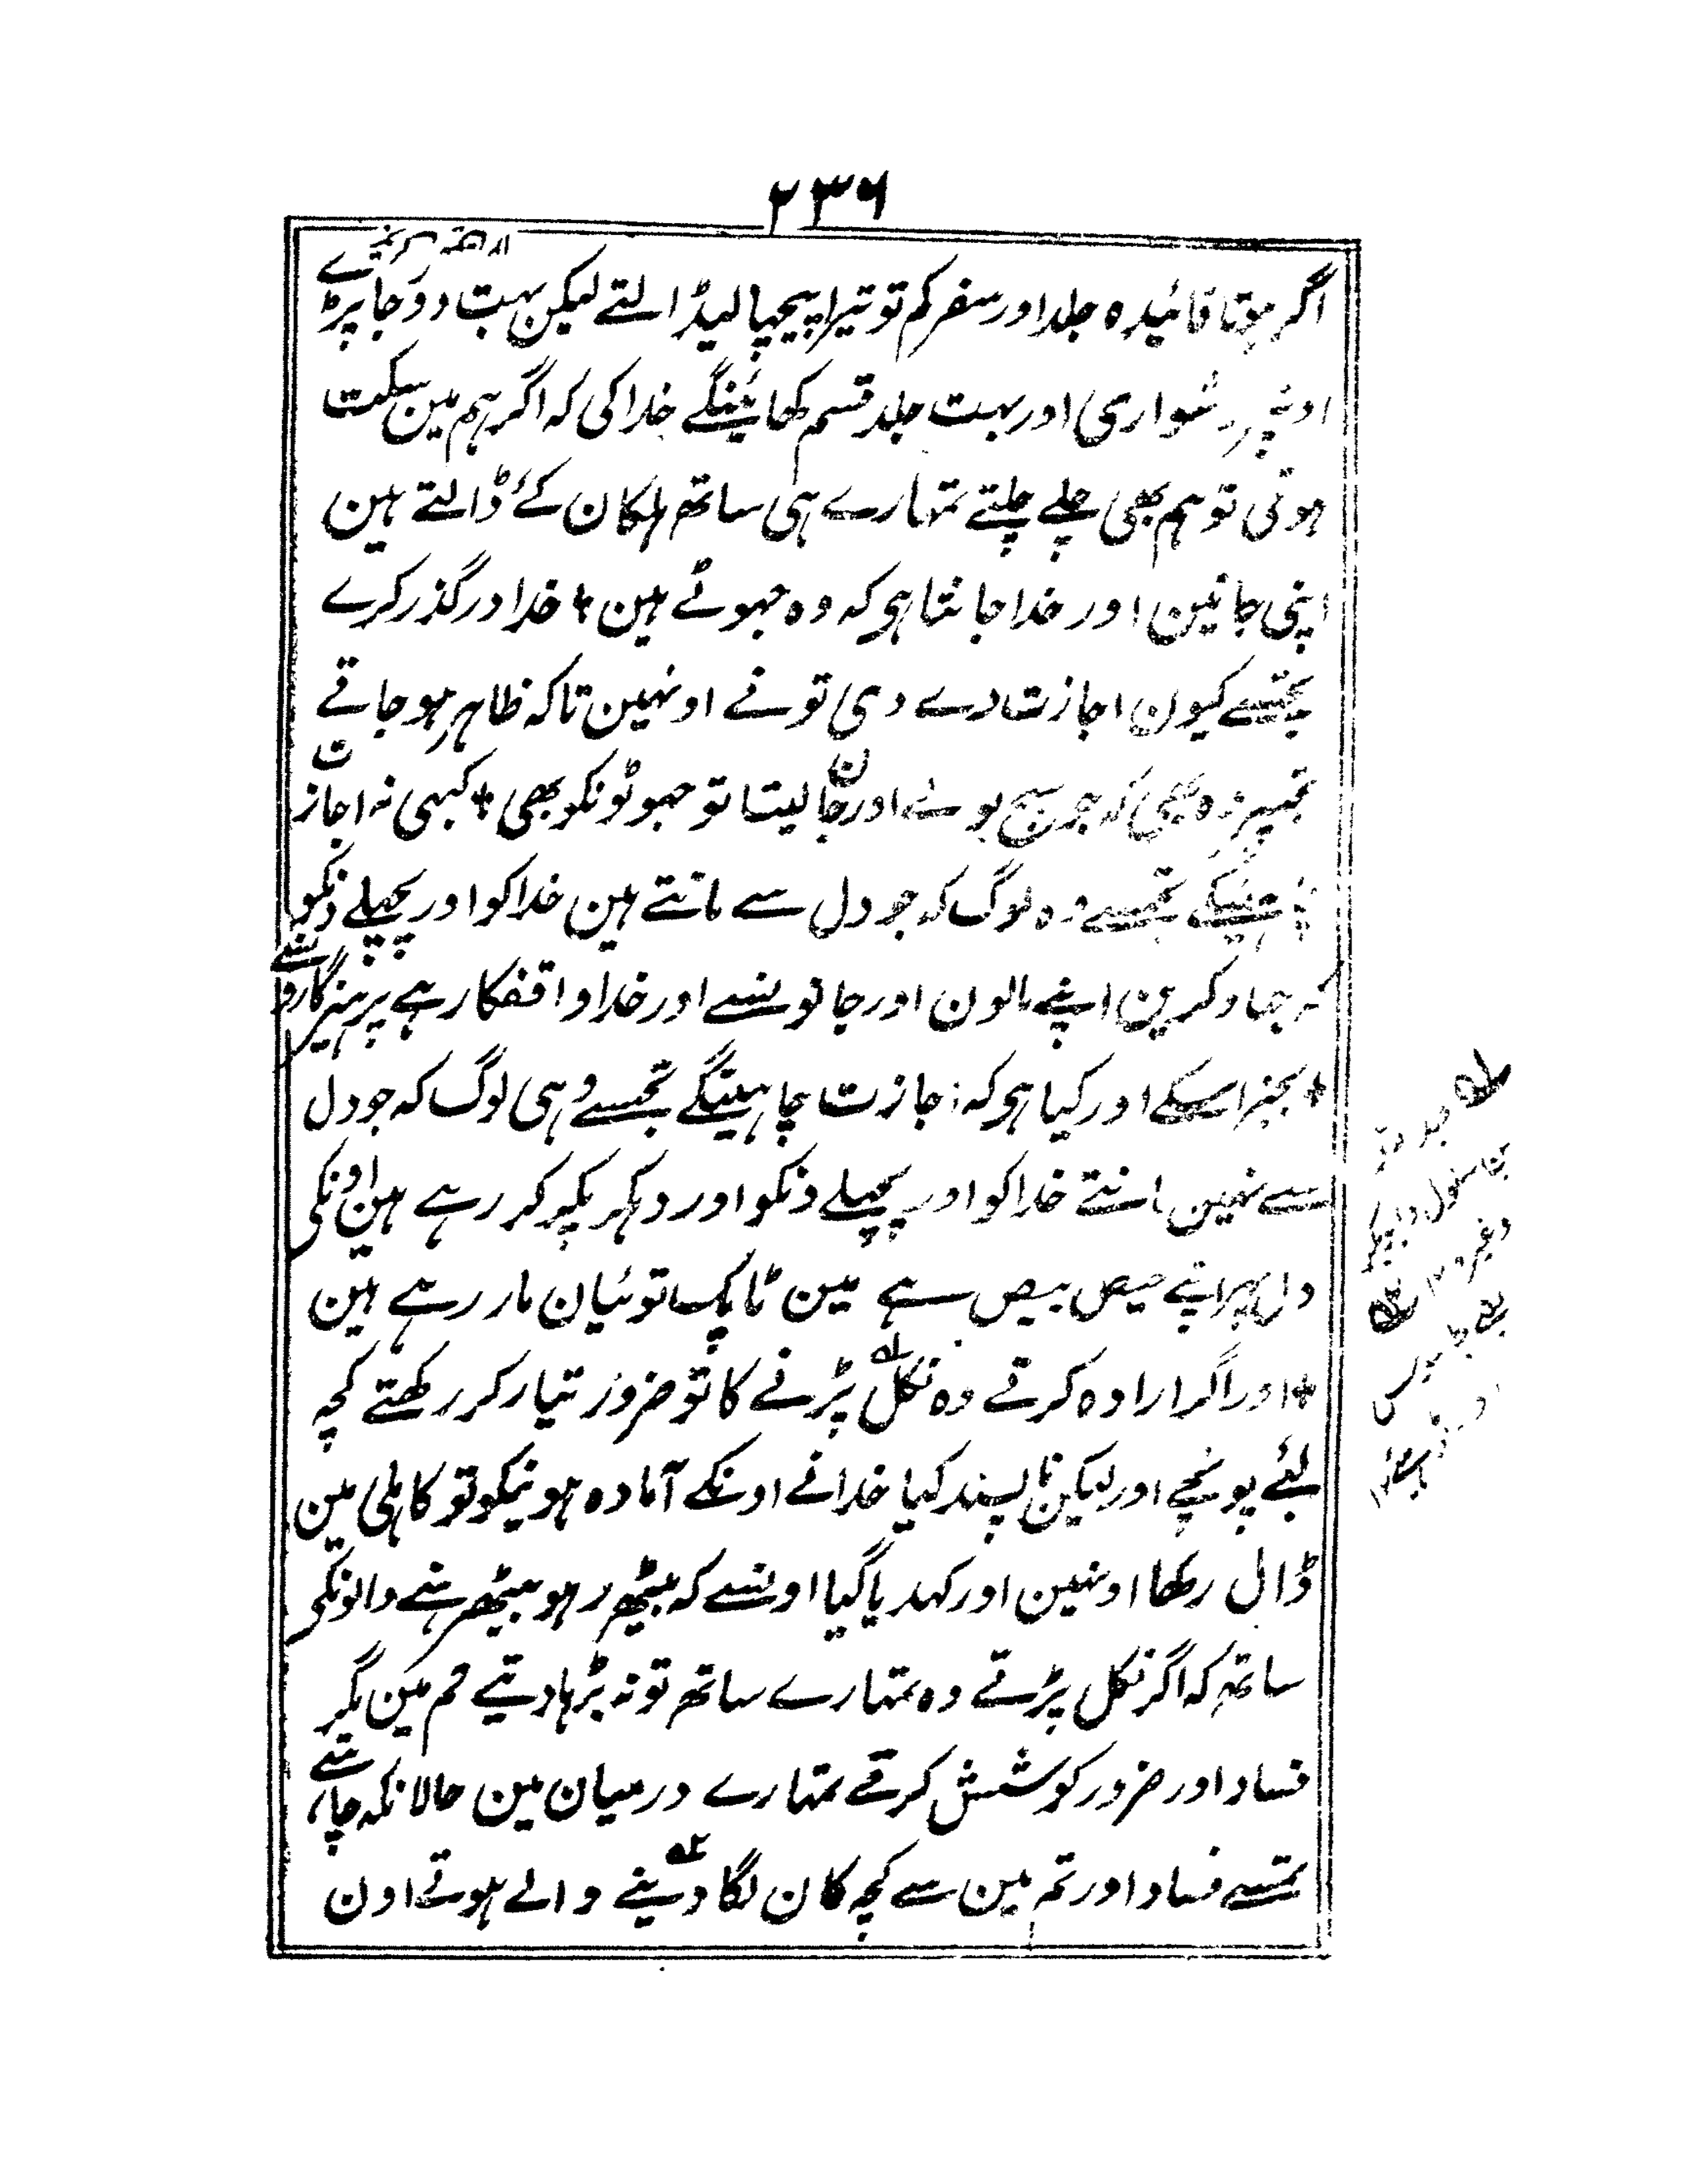 ۲۳۶
اگر ہوتا فائیدہ جلد اور سفر کم تو تیرا پیچھا لیڈالتے لیکن بہت دور جا پڑے
اونپر دشواری اور بہت جلد قسم کھائینگے خدا کی کہ اگر ہم مین سکت
ہوتی تو ہم بھی چلے چلتے تمہارے ہی ساتھ ہلکان کئے ڈالتے ہین
اپنی جانین اور خدا جانتا ہی کہ وہ جہوٹے ہین + خدا درگذر کرے
تجھسے کیون اجازت دے دی تو نے اونہین تاکہ ظاہر ہو جاتے
تجھپر وہ بھی کہ جو سچ بولے اور جان لیتا تو جہوٹونکو بھی + کبہی نہ اجازت
چاہینگے تجھسے وہ لوگ کہ جو دل سے مانتے ہین خدا کو اور پچہلے دنکو
کہ جہاد کرین اپنے مالون اور جانونسے اور خدا واقفکار ہے پرہیزگارونسے
+ بجز اسکے اور کیا ہی کہ اجازت چاہینگے تجھسے وہی لوگ کہ جو دل
سے نہین مانتے خدا کو اور پچہلے دنکو اور دہکر پکر کر رہے ہین اونکی
دل پہر اپنے حیص بیص سے مین ٹاپک توئیان مار رہے ہین
+ اور اگر ارادہ کرتے وہ نکل پڑنے کا تو ضرور تیار کر رکھتے کچہ
لئے پونجے اور لیکن ناپسند کیا خدا نے اونکے آمادہ ہونیکو تو کاہلی مین
ڈال رکھا اونہین اور کہدیا گیا اونسے کہ بیٹھ رہو بیٹھ رہنے والونکی
ساتھ کہ اگر نکل پڑتے وہ تمہارے ساتھ تو نہ بڑہا دیتے تم مین مگر
فساد اور ضرور کوشش کرتے تمہارے درمیان مین حالانکہ چاہتے
تمسے فساد اور تم مین سے کچہ کان لگا دینے والے ہوتے اون